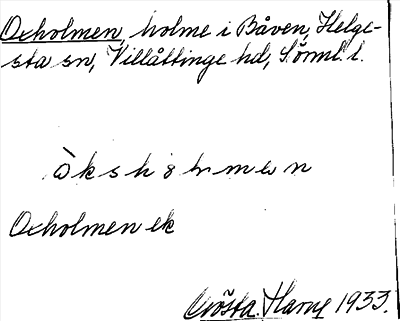 Oxholmen, holme i Båven, Helge-
sta sn, Villåttinge hd, Sörml. l.
òkshòlmen
Oxholmen ek
Gösta Harne 1933.